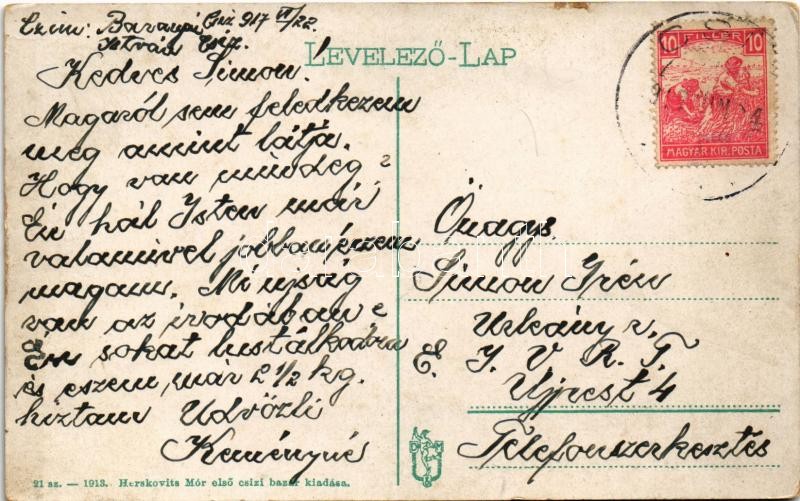 Czim: Baranyai Csiz 917 VI/22
István Csiz.
LEVELEZŐ-LAP
10 FILLÉR 10
MAGYAR KIR. POSTA
Kedves Simon!
Magaról sem feledkezem
meg amint látja.
Hogy van mindég?
Én hál Isten már
valamivel jobban érzem
magam. Mi ujság
van az irodában?
Én sokat lustálkodom
és eszem már 2 1/2 kg.
híztam Üdvözli
Keményné
Őnagys.
Simon Irén
Urleány r.
E. I. V. R. T.
Ujpest 4
Telefonszerkesztés
21 sz. — 1913. Herskovits Mór első csizi bazár kiadása.